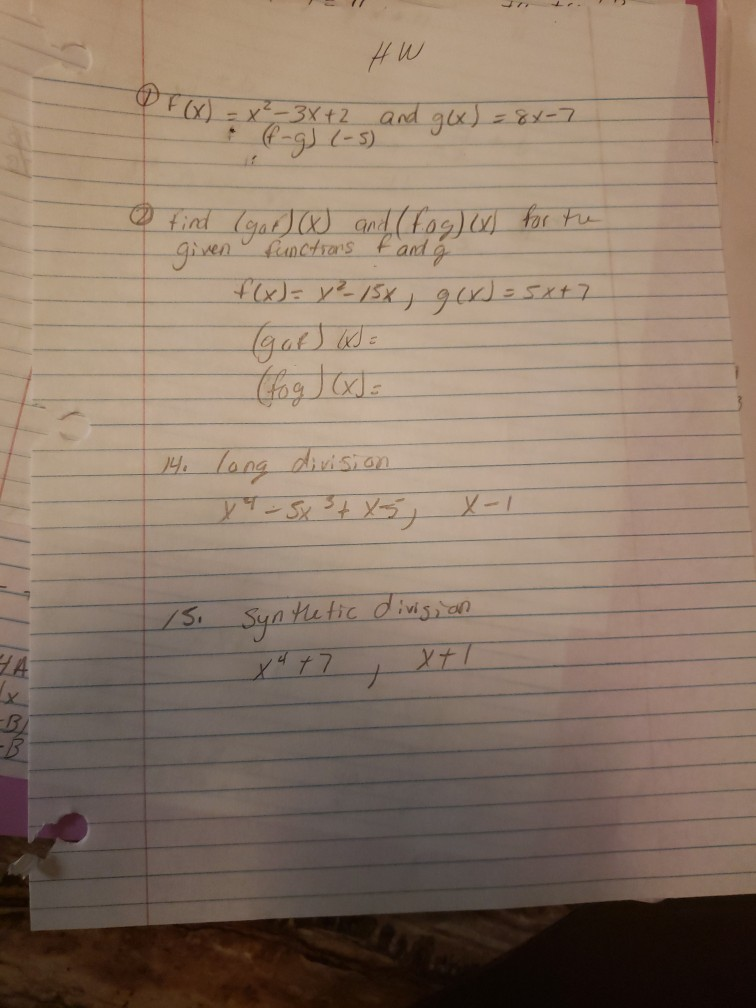 HW
① f(x) = x²-3x+2 and g(x) = 8x-7
(f-g) (-5)
② find (gof)(x) and (fog)(x) for the
given functions f and g
f(x)= x²-15x, g(x)=5x+7
(gof)(x)=
(fog)(x)=
14. long division
x⁴-5x³+x-5, x-1
15. Synthetic division
x⁴+7, x+1
4A
x
-B)
-B